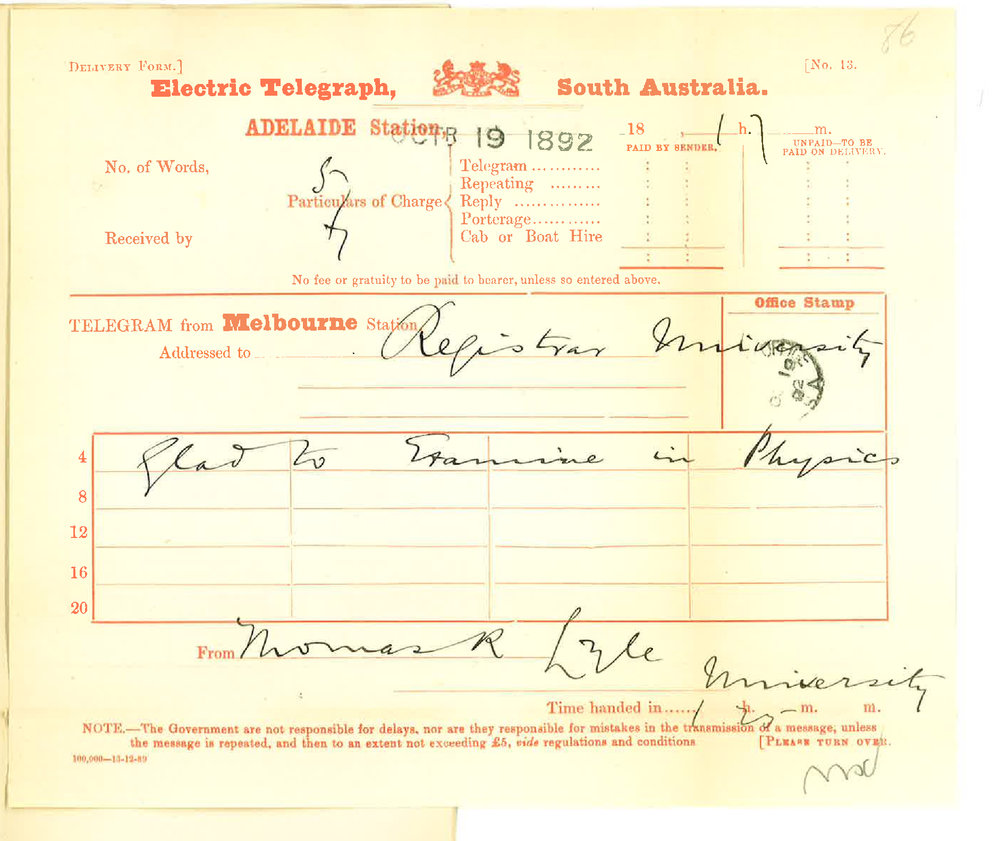 86
DELIVERY FORM.]
[No. 13.
Electric Telegraph, South Australia.
ADELAIDE Station, OCTR 19 1892
18 1 h. 7 m.
PAID BY SENDER.
UNPAID—TO BE PAID ON DELIVERY.
No. of Words, 5
Particulars of Charge
Telegram ............
Repeating .........
Reply ...............
Porterage............
Cab or Boat Hire
Received by
No fee or gratuity to be paid to bearer, unless so entered above.
TELEGRAM from Melbourne Station
Office Stamp
Addressed to Registrar University
19
92
S.A
4 Glad to Examine in Physics
8
12
16
20
From Thomas R Lyle
University
Time handed in...... 1 h. 25 m. m.
NOTE.—The Government are not responsible for delays, nor are they responsible for mistakes in the transmission of a message, unless
the message is repeated, and then to an extent not exceeding £5, vide regulations and conditions [PLEASE TURN OVER.
100,000—13-12-89